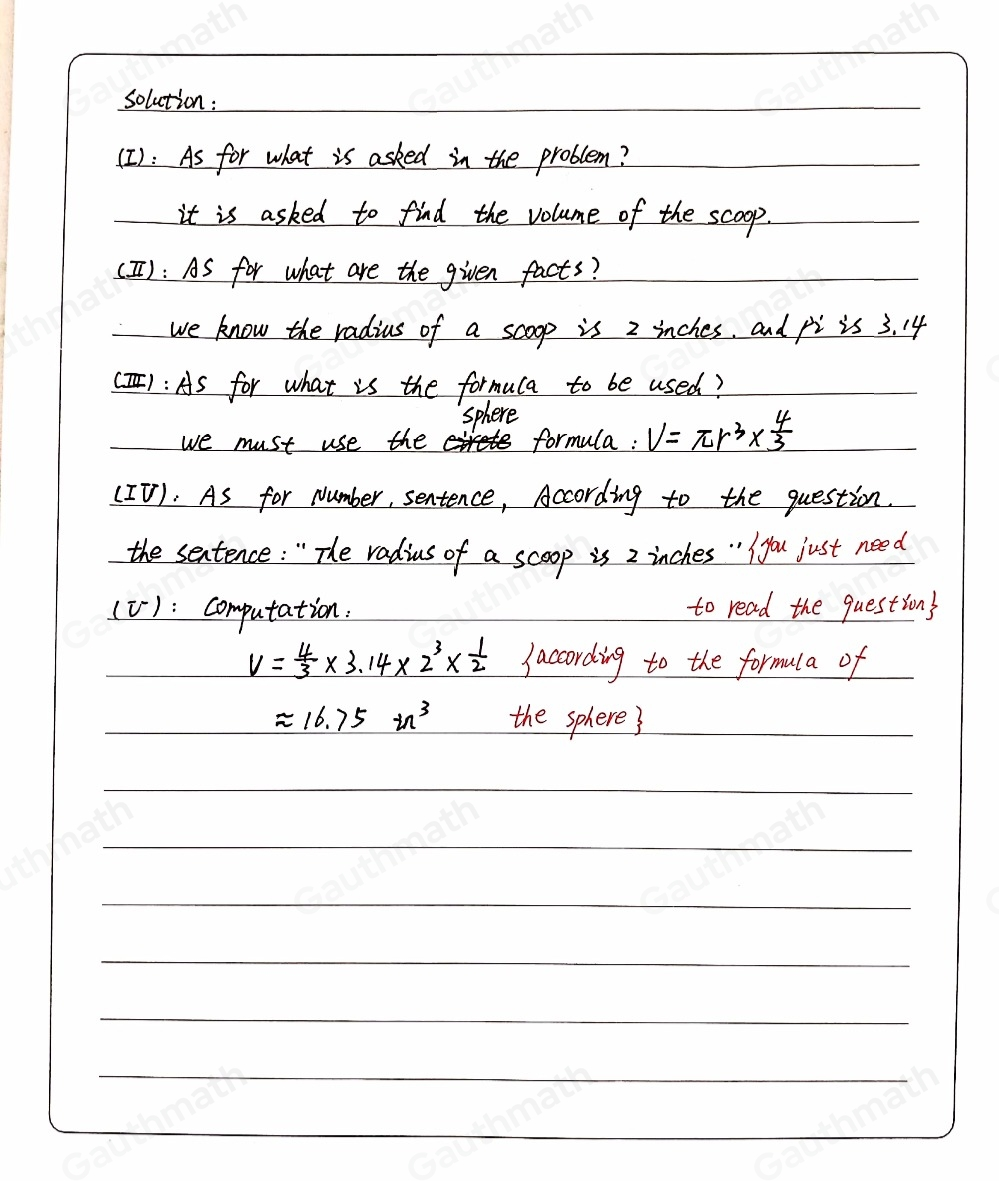 Solution:
(I): As for what is asked in the problem?
it is asked to find the volume of the scoop.
(II): As for what are the given facts?
we know the radius of a scoop is 2 inches. and pi is 3.14
(III): As for what is the formula to be used?
sphere
we must use the circle formula: V = πr³ × 4/3
(IV). As for Number, sentence, According to the question.
the sentence: "The radius of a scoop is 2 inches" {you just need
to read the question}
(V): Computation:
V = 4/3 × 3.14 × 2³ × 1/2 {according to the formula of
≈ 16.75 in³ the sphere}
Gauthmath